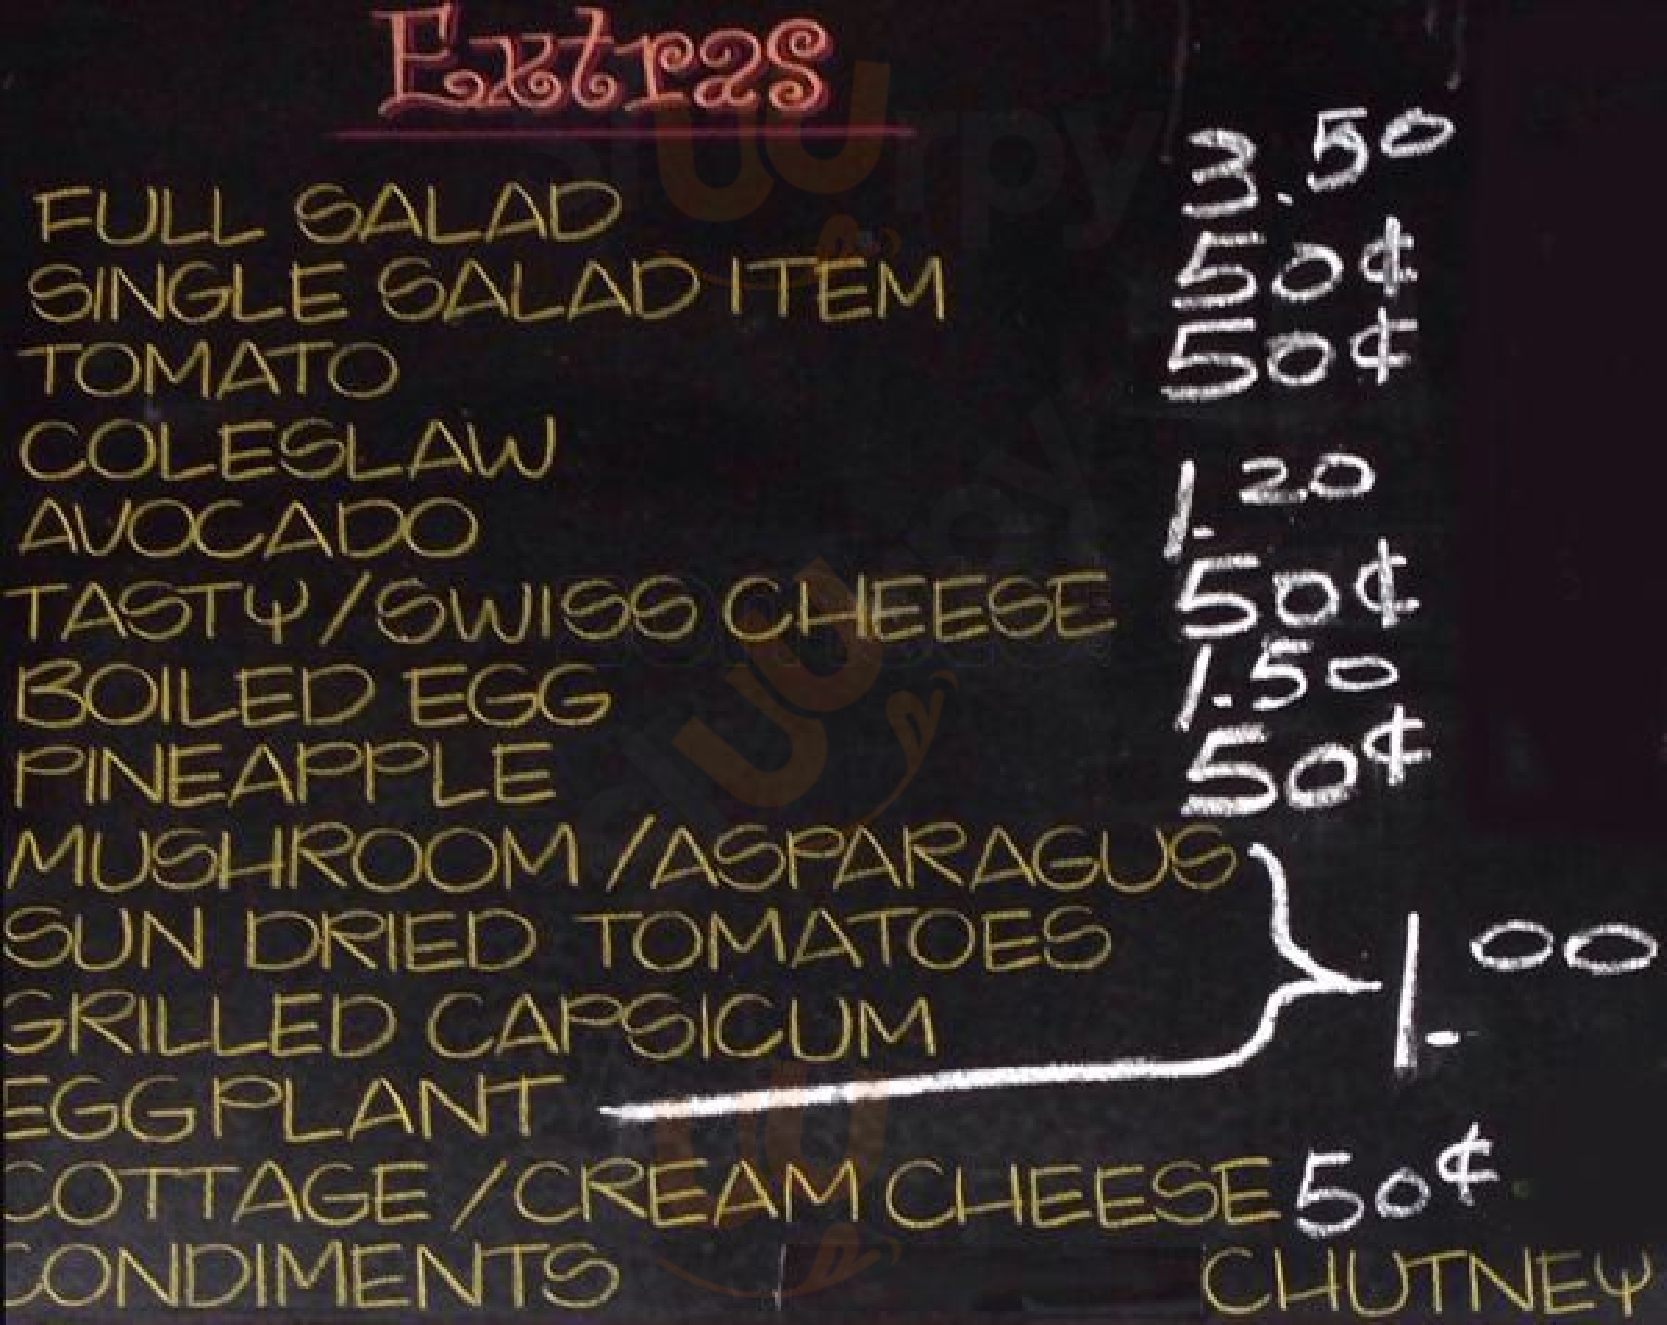 Extras
FULL SALAD 3.50
SINGLE SALAD ITEM 50¢
TOMATO 50¢
COLESLAW
AVOCADO 1.20
TASTY/SWISS CHEESE 50¢
BOILED EGG 1.50
PINEAPPLE 50¢
MUSHROOM /ASPARAGUS
SUN DRIED TOMATOES 1.00
GRILLED CAPSICUM
EGGPLANT
COTTAGE /CREAM CHEESE 50¢
CONDIMENTS CHUTNEY